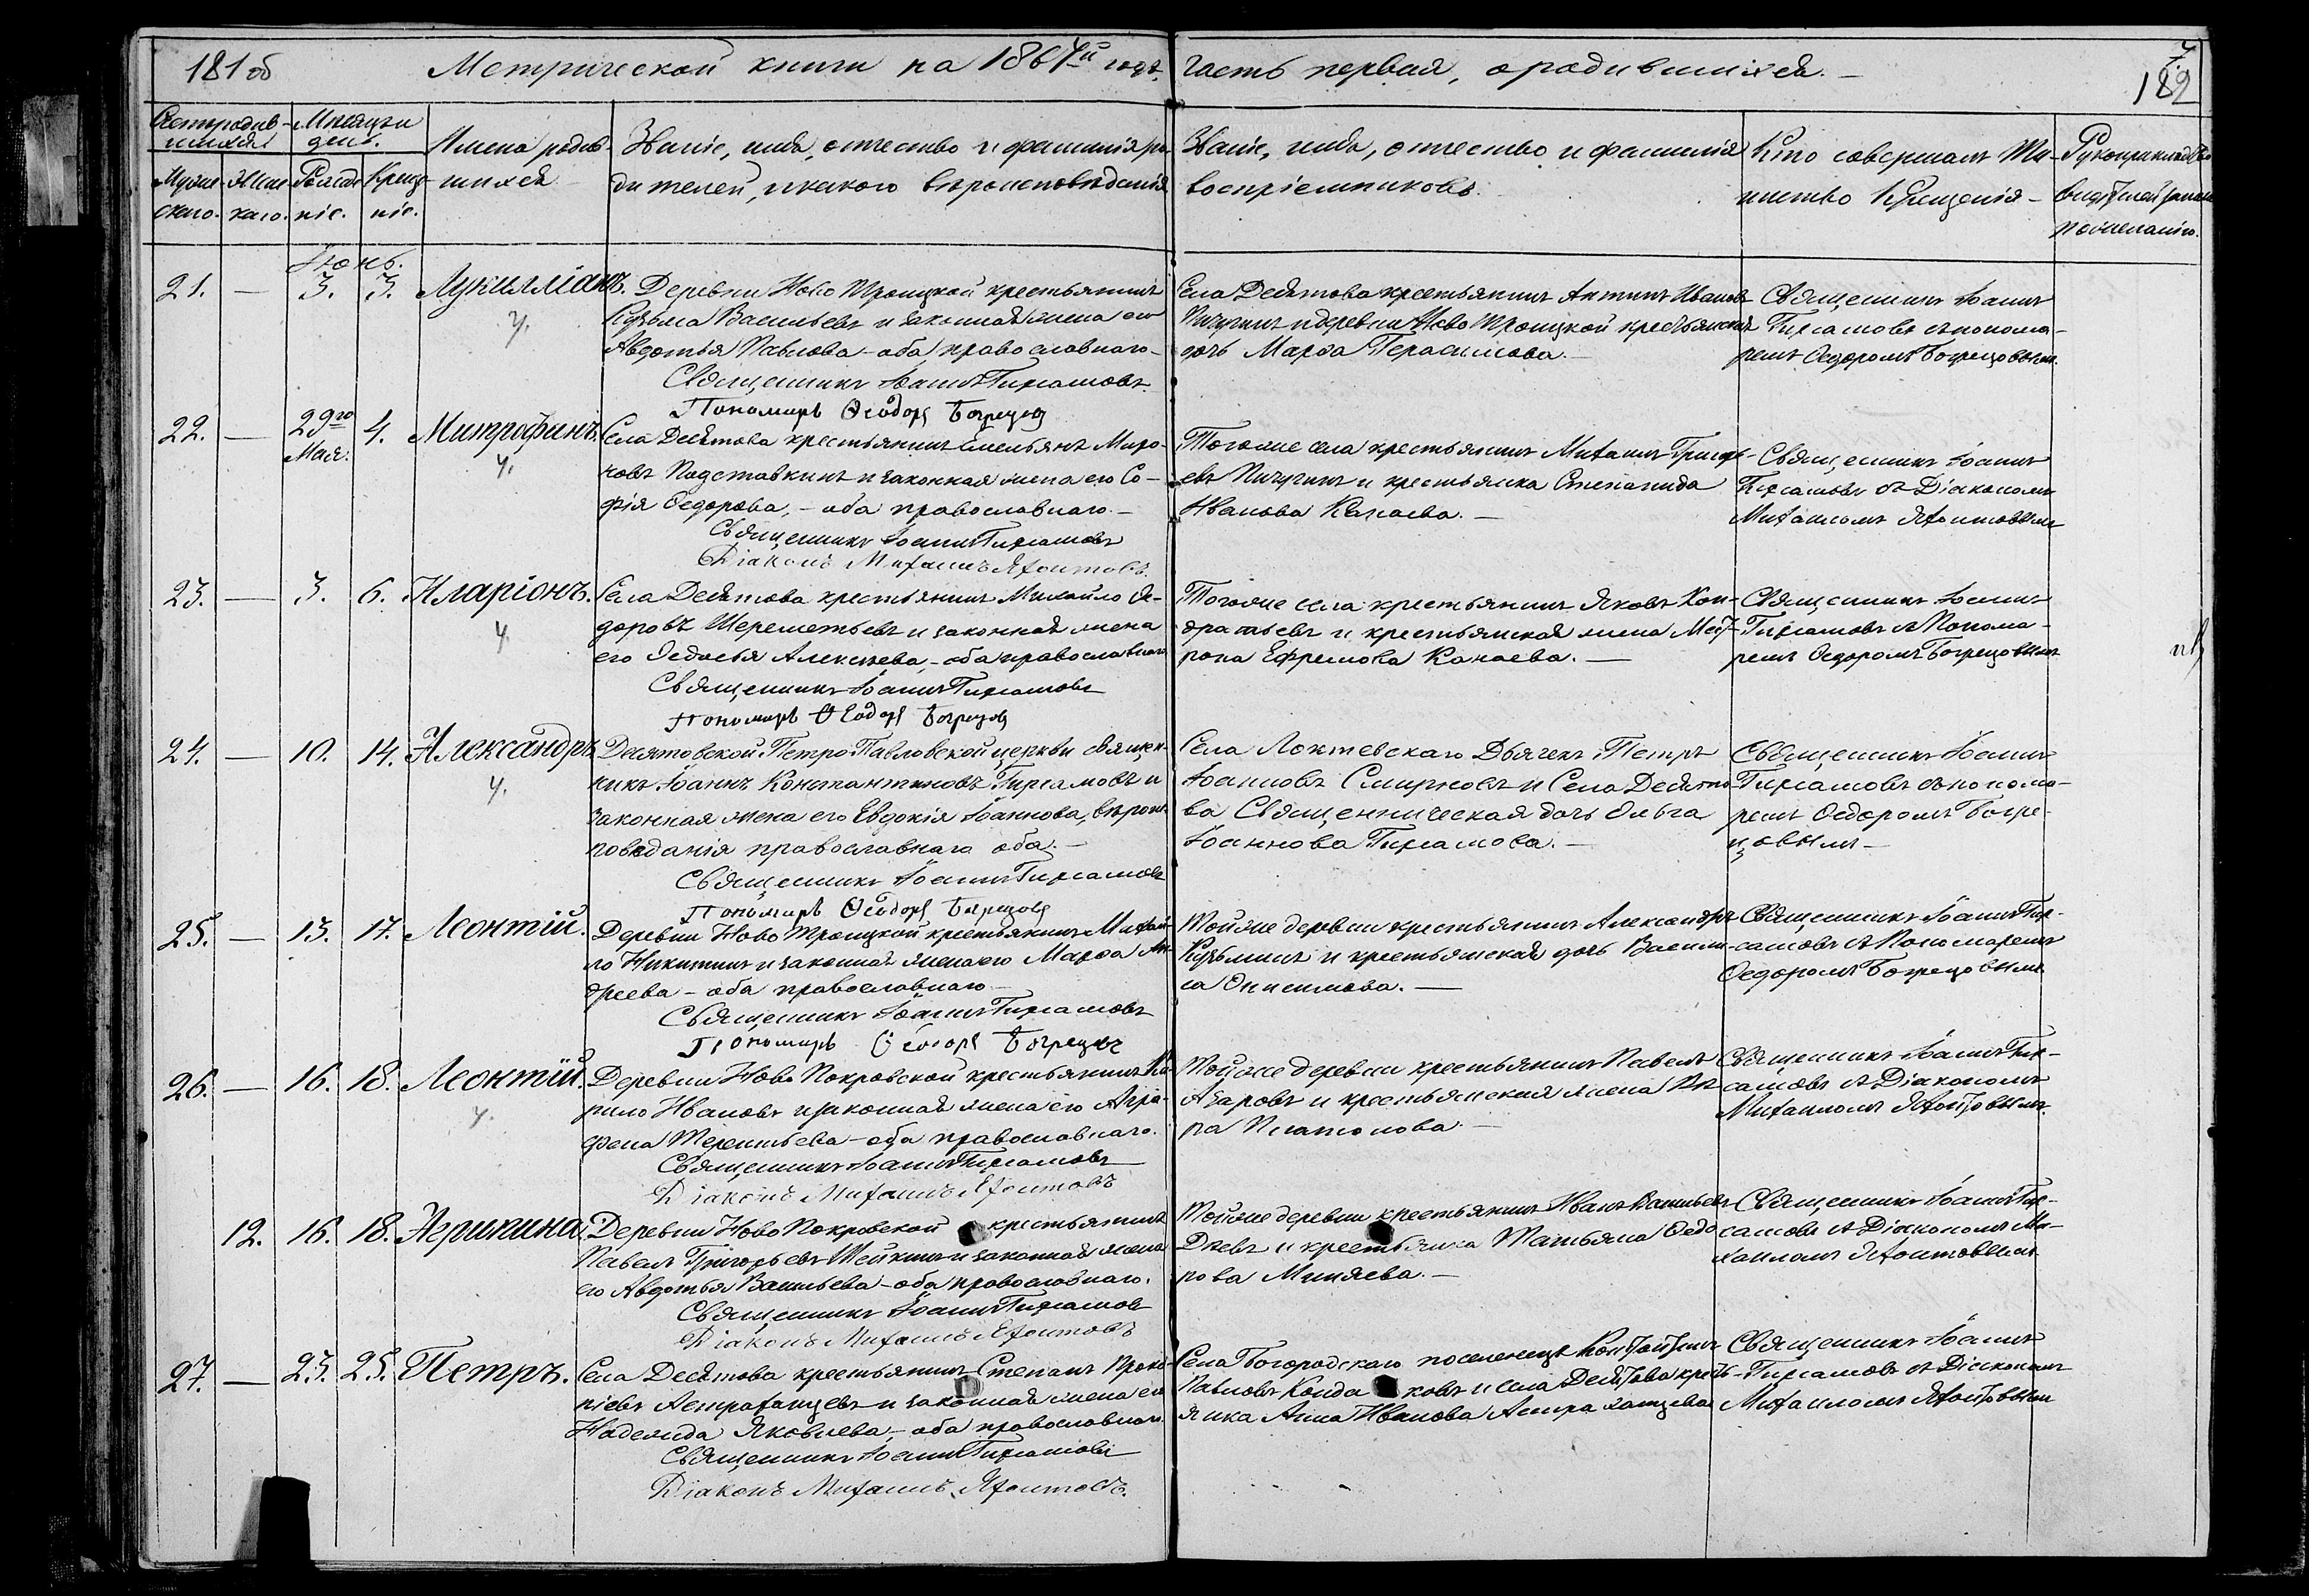 181 об
Метрической книги на 1867й годъ,
часть первая, о родившихся.
7.
182
Счетъ родив-
шихся
Муже-
скаго.
Жен-
скаго.
Мѣсяцъ и
день.
Рожде-
ніе.
Креще-
ніе.
Имена родив-
шихся
Званіе, имя, отчество и фамилія ро-
дителей, и какого вѣроисповѣданія
Званіе, имя, отчество и фамилія
воспріемниковъ.
Кто совершалъ Та-
инство Крещенія
Рукоприкладство
свидѣтелей записи
по желанію.
Іюнь.
21. — 3. 3. Лукилліанъ.
ч.
Деревни Ново Троицкой крестьянинъ
Кузьма Васильевъ и законная жена его
Авдотья Павлова - оба православнаго -
Священникъ Іоаннъ Гирсамовъ
Пономарь Ѳеодоръ Богрецов
Села Десятова крестьянинъ Антипъ Ивановъ
Пичугинъ и деревни Ново Троицкой крестьянская
дочь Марѳа Герасимова. —
Священникъ Іоаннъ
Гирсамовъ съ понома-
ремъ Ѳедоромъ Богрецовымъ.
22. — 29го Мая. 4. Митрофанъ.
ч.
Села Десятова крестьянинъ Емельянъ Миро-
новъ Подставкинъ и законная жена его Со-
фія Ѳедорова, - оба православнаго. —
Священникъ Іоаннъ Гирсамовъ
Діаконъ Михаилъ Яхонтовъ.
Тогоже села крестьянинъ Михаилъ Григорь-
евъ Пичугинъ и крестьянка Степанида
Иванова Канаева. —
Священникъ Іоаннъ
Гирсамовъ съ Діакономъ
Михаиломъ Яхонтовымъ
23. — 3. 6. Иларіонъ.
ч.
Села Десятова крестьянинъ Михайло Ѳе-
доровъ Шереметьевъ и законная жена
его Ѳедосья Алексѣева, - оба православнаго
Священникъ Іоаннъ Гирсамовъ
Пономарь Ѳеодоръ Богрецов
Тогоже села крестьянинъ Яковъ Кон-
дратьевъ и крестьянская жена Мат-
рона Ефремова Канаева. —
Священникъ Іоаннъ
Гирсамовъ съ Понома-
ремъ Ѳедоромъ Богрецовымъ
24. — 10. 14. Александръ.
ч.
Десятовской Петро-Павловской церкви священ-
никъ Іоаннъ Константиновъ Гирсамовъ и
законная жена его Евдокія Іоаннова, вѣроис-
повѣданія православнаго оба. —
Священникъ Іоаннъ Гирсамовъ
Пономарь Ѳеодоръ Богрецов
Села Локтевскаго Дьячекъ Петръ
Іоанновъ Смирновъ и Села Десято-
ва Священническая дочь Ольга
Іоаннова Гирсамова. —
Священникъ Іоаннъ
Гирсамовъ съ понома-
ремъ Ѳедоромъ Богре-
цовымъ —
25. — 13. 17. Леонтій.
Деревни Ново Троицкой крестьянинъ Михай-
ло Никитинъ и законная жена его Марѳа Ан-
дреева - оба православнаго —
Священникъ Іоаннъ Гирсамовъ
Пономарь Ѳеодоръ Богрецов
Тойже деревни крестьянинъ Александръ
Кузьминъ и крестьянская дочь Васили-
са Онисимова. —
Священникъ Іоаннъ Гир-
самовъ съ Пономаремъ
Ѳедоромъ Богрецовымъ
26. — 16. 18. Леонтій.
ч.
Деревни Ново Покровской крестьянинъ Ки-
рило Ивановъ и законная жена его Агра-
фена Терентьева - оба православнаго.
Священникъ Іоаннъ Гирсамовъ
Діаконъ Михаилъ Яхонтовъ
Тойже деревни крестьянинъ Павелъ
Азаровъ и крестьянская жена
Платонова. —
Священникъ Іоаннъ Гир-
самовъ съ Діакономъ
Михаиломъ Яхонтовымъ.
12. 16. 18. Агрипина.
Деревни Ново Покровской крестьянинъ
Павелъ Григорьевъ и законная жена
его Авдотья Васильева - оба православнаго.
Священникъ Іоаннъ Гирсамовъ
Діаконъ Михаилъ Яхонтовъ
Тойже деревни крестьянинъ Иванъ Васильевъ
и крестьянка Татьяна Ѳедо-
рова Миняева. —
Священникъ Іоаннъ Гир-
самовъ съ Діакономъ Ми-
хаиломъ Яхонтовымъ
27. — 23. 25. Петръ.
Села Десятова крестьянинъ Степанъ Проко-
піевъ Астраханцевъ и законная жена его
Надежда Яковлева, - оба православнаго.
Священникъ Іоаннъ Гирсамовъ
Діаконъ Михаилъ Яхонтовъ.
Села Богородскаго поселенецъ Константинъ
Павловъ и села Десятова кресть-
янка Анна Иванова Астраханцева
Священникъ Іоаннъ
Гирсамовъ съ Діакономъ
Михаиломъ Яхонтовымъ